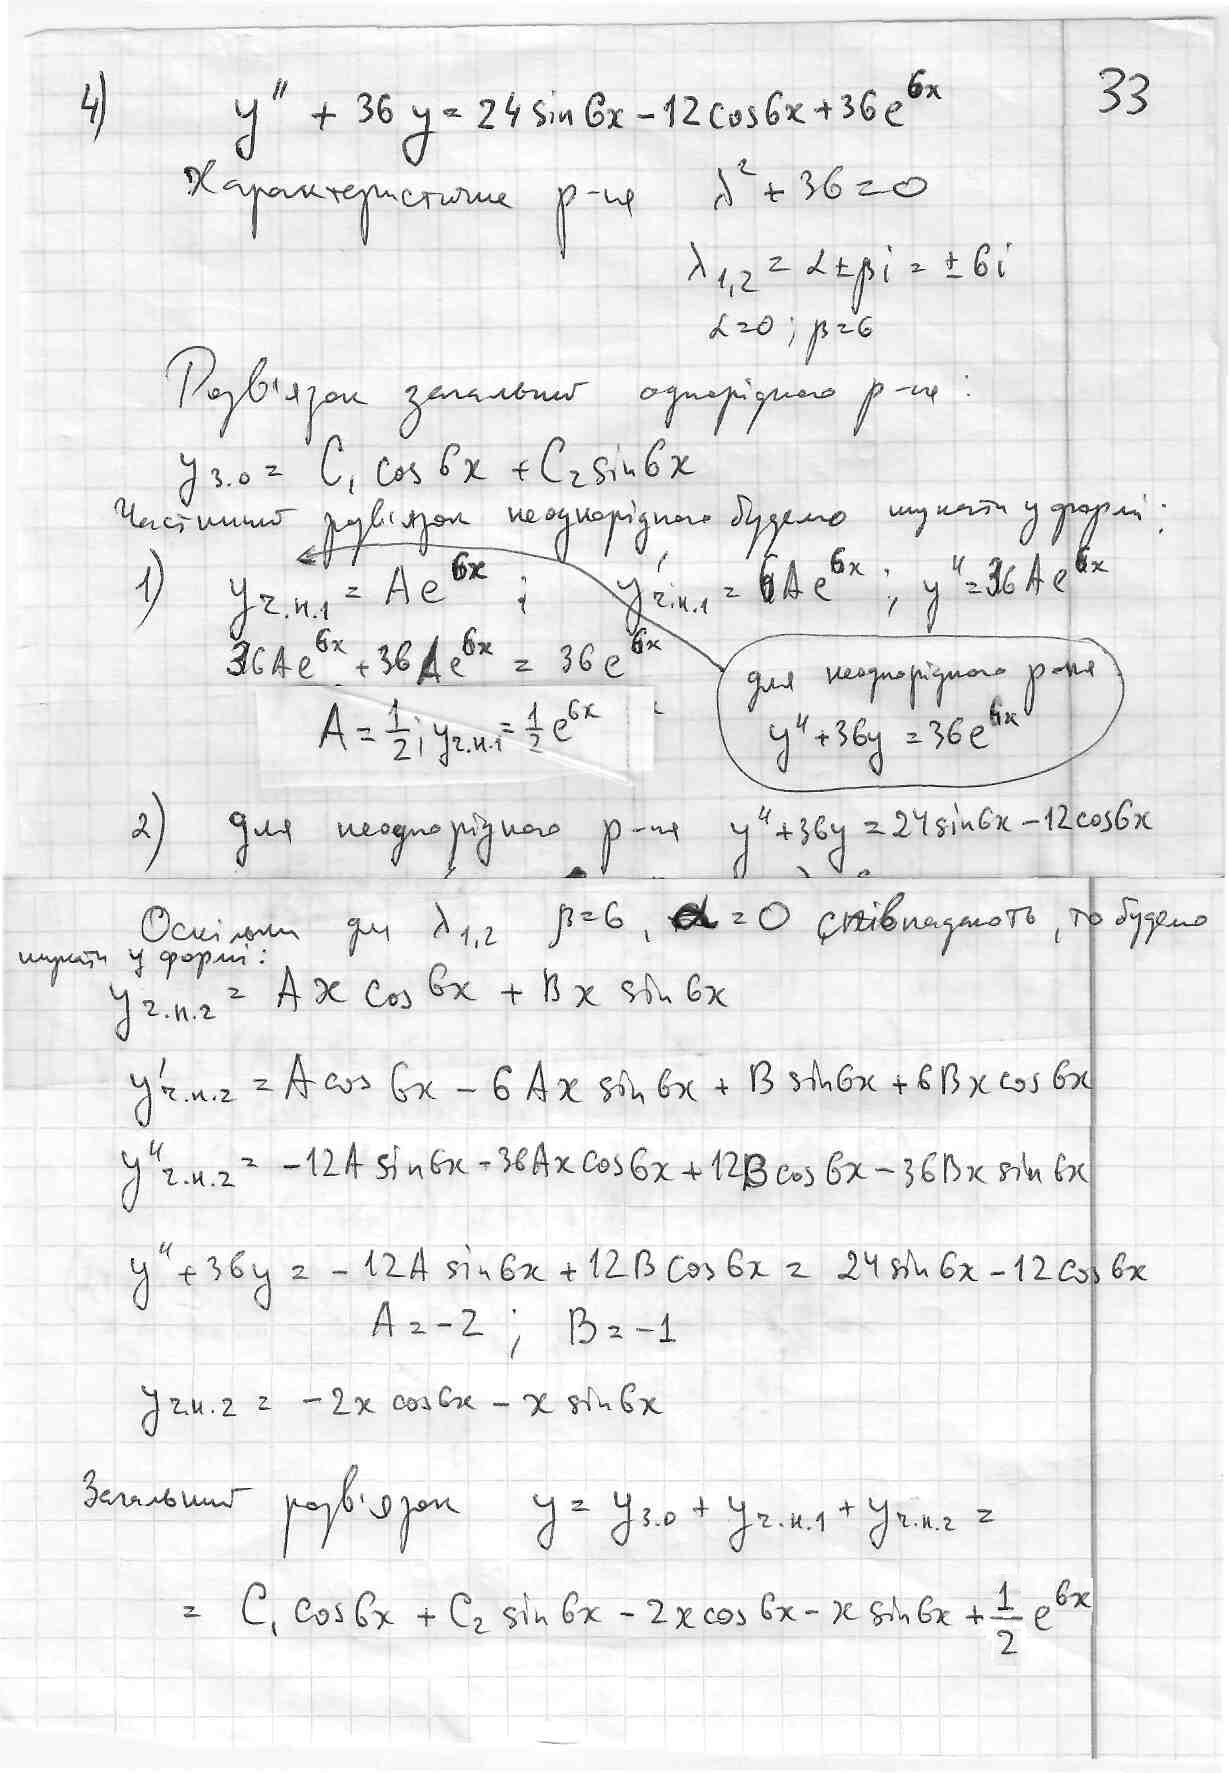 4) y'' + 36y = 24 sin 6x - 12 cos 6x + 36e^{6x} 33
Характеристичне р-ня λ² + 36 = 0
λ_{1,2} = α ± βi = ± 6i
α = 0 ; β = 6
Розв'язок загальний однорідного р-ня :
y_{з.о} = C₁ cos 6x + C₂ sin 6x
Частинний розв'язок неоднорідного будемо шукати у формі :
1) y_{ч.н.1} = Ae^{6x} ; y'_{ч.н.1} = 6Ae^{6x} ; y'' = 36Ae^{6x}
36Ae^{6x} + 36Ae^{6x} = 36e^{6x}
для неоднорідного р-ня
y'' + 36y = 36e^{6x}
A = 1/2 ; y_{ч.н.1} = 1/2 e^{6x}
2) для неоднорідного р-ня y'' + 36y = 24 sin 6x - 12 cos 6x
Оскільки для λ_{1,2} β = 6 , α = 0 співпадають, то будемо
шукати у формі :
y_{ч.н.2} = Ax cos 6x + Bx sin 6x
y'_{ч.н.2} = A cos 6x - 6Ax sin 6x + B sin 6x + 6Bx cos 6x
y''_{ч.н.2} = -12A sin 6x - 36Ax cos 6x + 12B cos 6x - 36Bx sin 6x
y'' + 36y = -12A sin 6x + 12B cos 6x = 24 sin 6x - 12 cos 6x
A = -2 ; B = -1
y_{ч.н.2} = -2x cos 6x - x sin 6x
Загальний розв'язок y = y_{з.о} + y_{ч.н.1} + y_{ч.н.2} =
= C₁ cos 6x + C₂ sin 6x - 2x cos 6x - x sin 6x + 1/2 e^{6x}